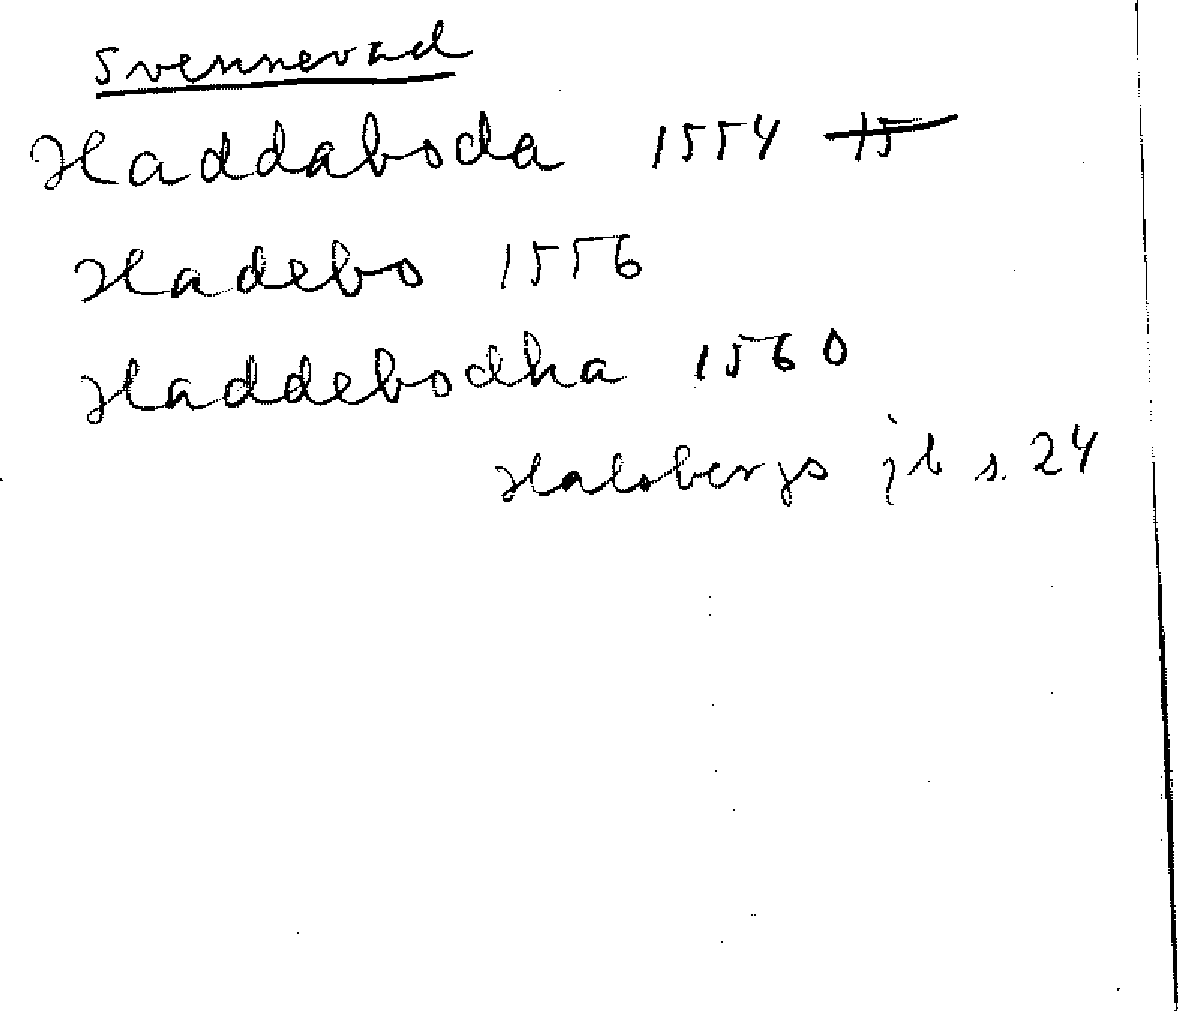 Svennevad
Haddaboda 1554 15
Hadebo 1556
Haddebodha 1560
Halsbergs jb s. 24